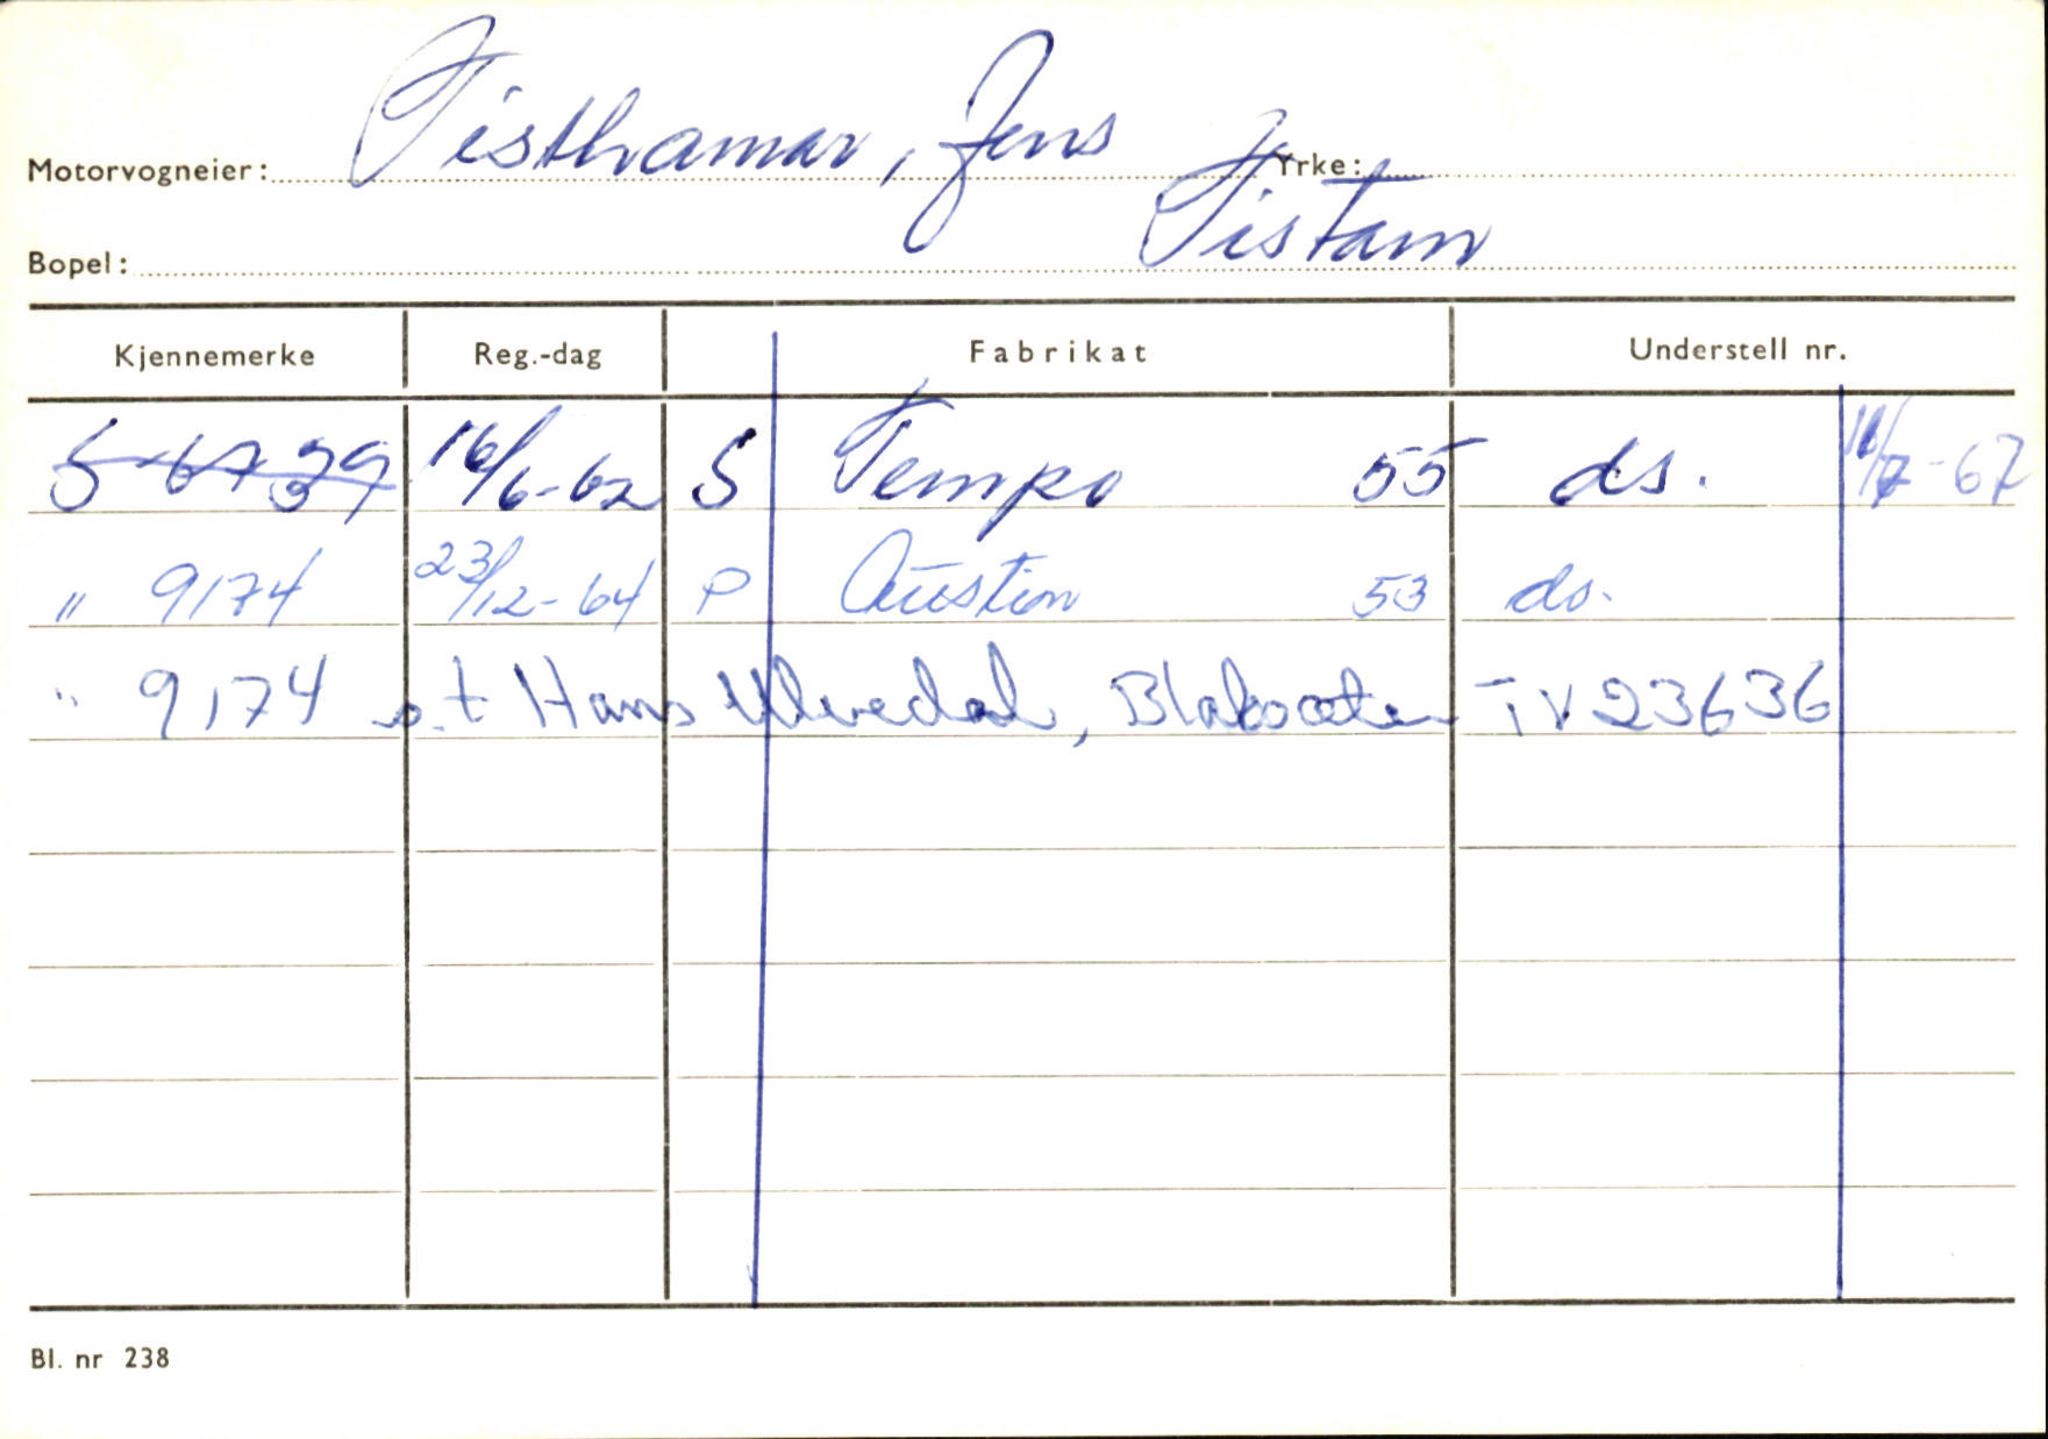 Motorvogneier: Tisthamar, Jens Yrke:
Bopel: Tistam
Kjennemerke Reg.-dag Fabrikat Understell nr.
S-6739 16/6-62 S Tempo 55 ds. 11/7-67
" 9174 23/12-64 P Austin 53 ds.
" 9174 o.t Hans Ulvedal, Blaksæter TV 23636
Bl. nr 238